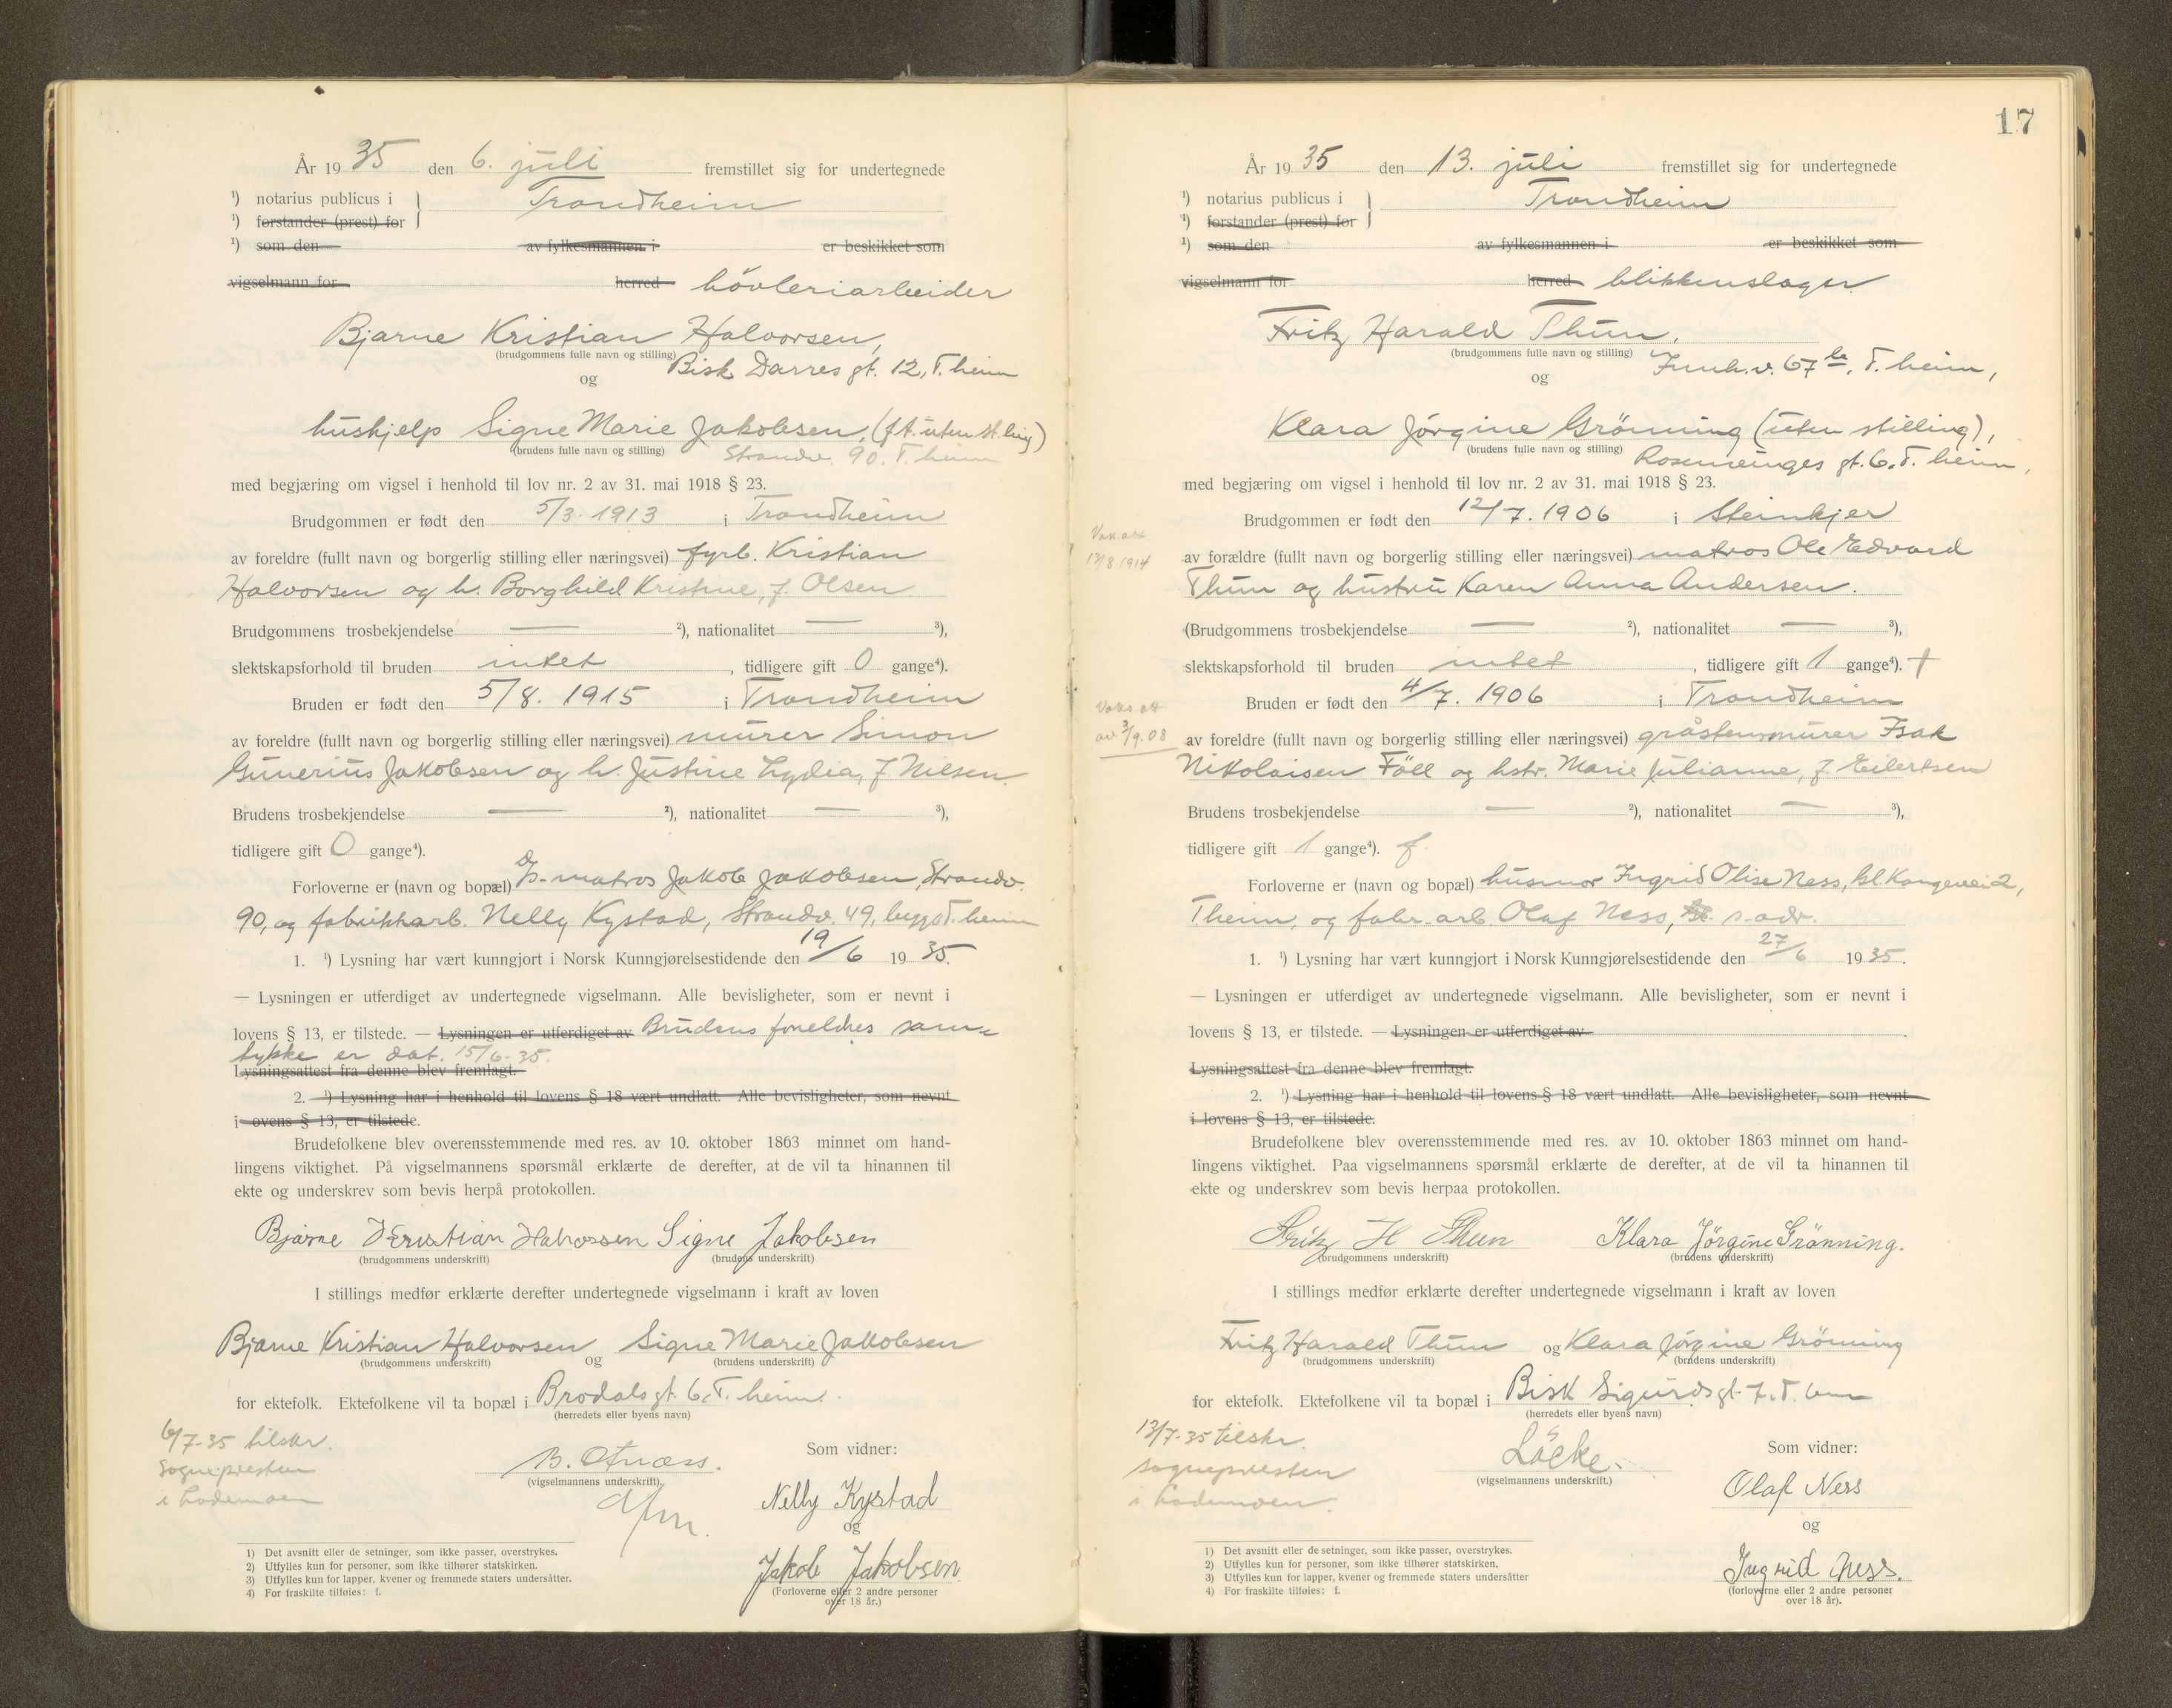 År 1935 den 6. juli fremstillet sig for undertegnede
¹) notarius publicus i Trondheim
¹) forstander (prest) for
¹) som den av fylkesmannen i er beskikket som
vigselmann for herred hövleriarbeider
Bjarne Kristian Halvorsen,
(brudgommens fulle navn og stilling) Bisk Darres gt. 12, T.heim
og
hushjelp Signe Marie Jakobsen, (f.t. uten st.ling)
(brudens fulle navn og stilling) Strandv. 90. T.heim
med begjæring om vigsel i henhold til lov nr. 2 av 31. mai 1918 § 23.
Brudgommen er født den 5/3. 1913 i Trondheim
av foreldre (fullt navn og borgerlig stilling eller næringsvei) fyrb. Kristian
Halvorsen og h. Borghild Kristine, f. Olsen
Brudgommens trosbekjendelse — ²), nationalitet — ³),
slektskapsforhold til bruden intet, tidligere gift 0 gange⁴).
Bruden er født den 5/8. 1915 i Trondheim
av foreldre (fullt navn og borgerlig stilling eller næringsvei) murer Simon
Gunerius Jakobsen og h. Justine Lydia, f Nilsen
Brudens trosbekjendelse — ²), nationalitet — ³),
tidligere gift 0 gange⁴).
Forloverne er (navn og bopæl) matros Jakob Jakobsen, Strandv.
90, og fabrikkarb. Nelly Kystad, Strandv. 49, begge T.heim
1. ¹) Lysning har vært kunngjort i Norsk Kunngjørelsestidende den 19/6 1935.
— Lysningen er utferdiget av undertegnede vigselmann. Alle bevisligheter, som er nevnt i
lovens § 13, er tilstede. — Lysningen er utferdiget av Brudens foreldres sam-
tykke er dat. 15/6-35.
Lysningsattest fra denne blev fremlagt.
2. ¹) Lysning har i henhold til lovens § 18 vært undlatt. Alle bevisligheter, som nevnt
i ovens § 13, er tilstede.
Brudefolkene blev overensstemmende med res. av 10. oktober 1863 minnet om hand-
lingens viktighet. På vigselmannens spørsmål erklærte de derefter, at de vil ta hinannen til
ekte og underskrev som bevis herpå protokollen.
Bjarne Kristian Halvorsen Signe Jakobsen
(brudgommens underskrift) (brudens underskrift)
I stillings medfør erklærte derefter undertegnede vigselmann i kraft av loven
Bjarne Kristian Halvorsen og Signe Marie Jakobsen
(brudgommens underskrift) (brudens underskrift)
for ektefolk. Ektefolkene vil ta bopæl i Brodals gt. 6, T.heim.
(herredets eller byens navn)
6/7-35 tilskr.
Sognepresten
i Lademoen
(vigselmannens underskrift).
Som vidner:
Nelly Kystad
og
Jakob Jakobsen
(Forloverne eller 2 andre personer
over 18 år.)
1) Det avsnitt eller de setninger, som ikke passer, overstrykes.
2) Utfylles kun for personer, som ikke tilhører statskirken.
3) Utfylles kun for lapper, kvener og fremmede staters undersåtter.
4) For fraskilte tilføies: f.
17
År 1935 den 13. juli fremstillet sig for undertegnede
¹) notarius publicus i Trondheim
¹) forstander (prest) for
¹) som den av fylkesmannen i er beskikket som
vigselmann for herred blikkenslager
Fritz Harald Thun,
(brudgommens fulle navn og stilling) Innh.v. 67 b, T.heim,
og
Klara Jörgine Grönning (uten stilling),
(brudens fulle navn og stilling) Rosenvinges gt. 6. T.heim,
med begjæring om vigsel i henhold til lov nr. 2 av 31. mai 1918 § 23.
Brudgommen er født den 12/7. 1906 i Steinkjer
Vak.att
13/8 1914
av forældre (fullt navn og borgerlig stilling eller næringsvei) matros Ole Edvard
Thun og hustru Karen Anna Andersen.
(Brudgommens trosbekjendelse — ²), nationalitet — ³),
slektskapsforhold til bruden intet, tidligere gift 1 gange⁴). †
Bruden er født den 4/7. 1906 i Trondheim
Vaks att
av 3/9.08
av foreldre (fullt navn og borgerlig stilling eller næringsvei) gråstensmurer Isak
Nikolaisen Föll og hstr. Marie Julianne, f. Eilertsen
Brudens trosbekjendelse — ²), nationalitet — ³),
tidligere gift 1 gange⁴). f.
Forloverne er (navn og bopæl) husmor Ingrid Olise Ness, Kl. Kongevei 2,
T.heim, og fabr. arb. Olaf Ness, s. adr.
1. ¹) Lysning har vært kunngjort i Norsk Kunngjørelsestidende den 27/6 1935.
— Lysningen er utferdiget av undertegnede vigselmann. Alle bevisligheter, som er nevnt i
lovens § 13, er tilstede. — Lysningen er utferdiget av
Lysningsattest fra denne blev fremlagt.
2. ¹) Lysning har i henhold til lovens § 18 vært undlatt. Alle bevisligheter, som nevnt
i lovens § 13, er tilstede.
Brudefolkene blev overensstemmende med res. av 10. oktober 1863 minnet om hand-
lingens viktighet. Paa vigselmannens spørsmål erklærte de derefter, at de vil ta hinannen til
ekte og underskrev som bevis herpaa protokollen.
Fritz H Thun Klara Jørgine Grönning.
(brudgommens underskrift) (brudens underskrift)
I stillings medfør erklærte derefter undertegnede vigselmann i kraft av loven
Fritz Harald Thun og Klara Jörgine Grönning
(brudgommens underskrift) (brudens underskrift)
for ektefolk. Ektefolkene vil ta bopæl i Bisk Sigurds gt 7. T.heim
(herredets eller byens navn)
13/7-35 tilskr.
sognepresten
i Lademoen.
Löcke.
(vigselmannens underskrift.)
Som vidner:
Olaf Ness
og
Ingrid Ness.
(forloverne eller 2 andre personer
over 18 år).
1) Det avsnitt eller de setninger, som ikke passer, overstrykes.
2) Utfylles kun for personer, som ikke tilhører statskirken.
3) Utfylles kun for lapper, kvener og fremmede staters undersåtter
4) For fraskilte tilføies: f.